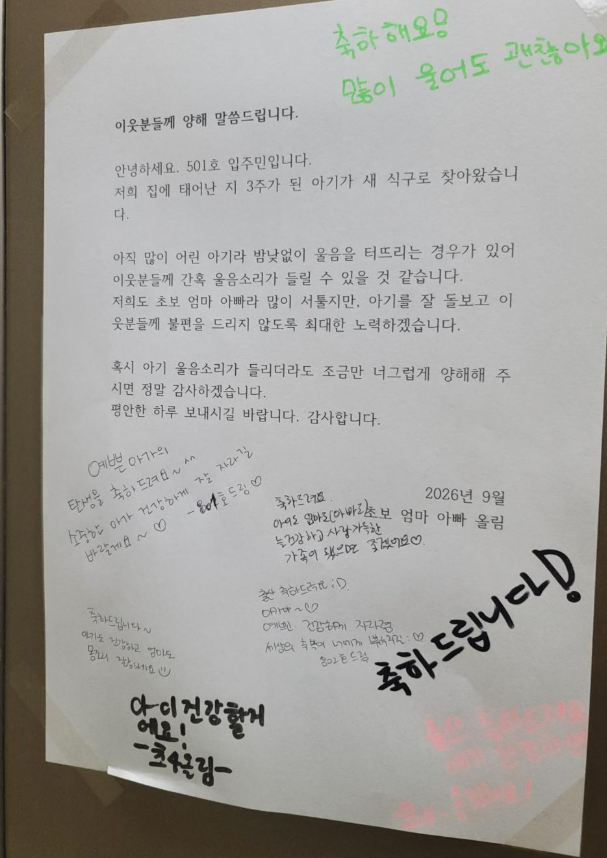 축하해요!
많이 울어도 괜찮아요
이웃분들께 양해 말씀드립니다.
안녕하세요. 501호 입주민입니다.
저희 집에 태어난 지 3주가 된 아기가 새 식구로 찾아왔습니
다.
아직 많이 어린 아기라 밤낮없이 울음을 터뜨리는 경우가 있어
이웃분들께 간혹 울음소리가 들릴 수 있을 것 같습니다.
저희도 초보 엄마 아빠라 많이 서툴지만, 아기를 잘 돌보고 이
웃분들께 불편을 드리지 않도록 최대한 노력하겠습니다.
혹시 아기 울음소리가 들리더라도 조금만 너그럽게 양해해 주
시면 정말 감사하겠습니다.
평안한 하루 보내시길 바랍니다. 감사합니다.
2026년 9월
초보 엄마 아빠 올림
예쁜 아가의
탄생을 축하드려요~^^
소중한 아가 건강하게 잘 자라길
바랄게요~♡ -801호드림♡
축하드려요
아이도 엄마도(아빠도)
늘건강하고 사랑가득한
가족이 됐으면 좋겠어요♡.
출산 축하드려요 :D
아가야~♡
예쁘게 건강하게 자라렴
세상의 축복이 너에게 :♡
802호드림
축하드립니다~
아기도 건강하고 엄마도
몸조리 잘하세요
축하드립니다!
건강할거
예요!
-초4올림-